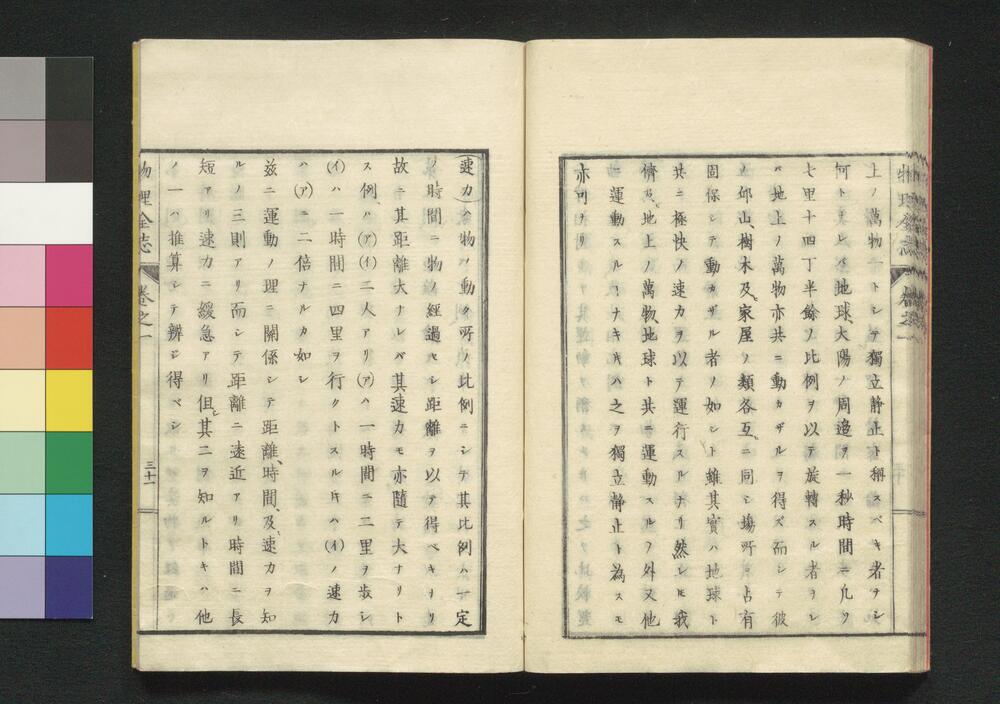 上ノ萬物一トシテ獨立靜止ト稱スベキ者ナシ
何トナレバ地球、大陽ノ周邉ヲ一秒時間ニ凡ソ
七里十四丁半餘ノ比例ヲ以テ旋轉スル者ナレ
バ地上ノ萬物亦共ニ動カザルヲ得ズ而シテ彼
ノ邱山、樹木及ヒ家屋ノ類各互ニ同シ塲所ヲ占有
固保シテ動カザル者ノ如シト雖其實ハ地球ト
共ニ極快ノ速力ヲ以テ運行スルナリ然レ𪜈我
儕及ヒ地上ノ萬物、地球ト共ニ運動スルノ外又他
ニ運動スルヿナキ𪜈ハ之ヲ獨立靜止ト為スモ
亦可ナリ
(速力)ハ物ノ動ク所ノ比例ニシテ其比例ハ一定
ノ時間ニ物ノ經過セシ距離ヲ以テ得ベキナリ
故ニ其距離大ナレバ其速力モ亦隨テ大ナリト
ス例ハ(ア)(イ)二人アリ(ア)ハ一時間ニ二里ヲ歩シ
(イ)ハ一時間ニ四里ヲ行クトスル𪜈ハ(イ)ノ速力
ハ(ア)ニ二倍ナルカ如シ
茲ニ運動ノ理ニ關係シテ距離、時間、及ヒ速力ヲ知
ルノ三則アリ而シテ距離ニ遠近アリ時間ニ長
短アリ速力ニ緩急アリ但シ其二ヲ知ルトキハ他
ノ一ハ推算シテ辨ジ得ベシ
物理全志 卷之一 三十一